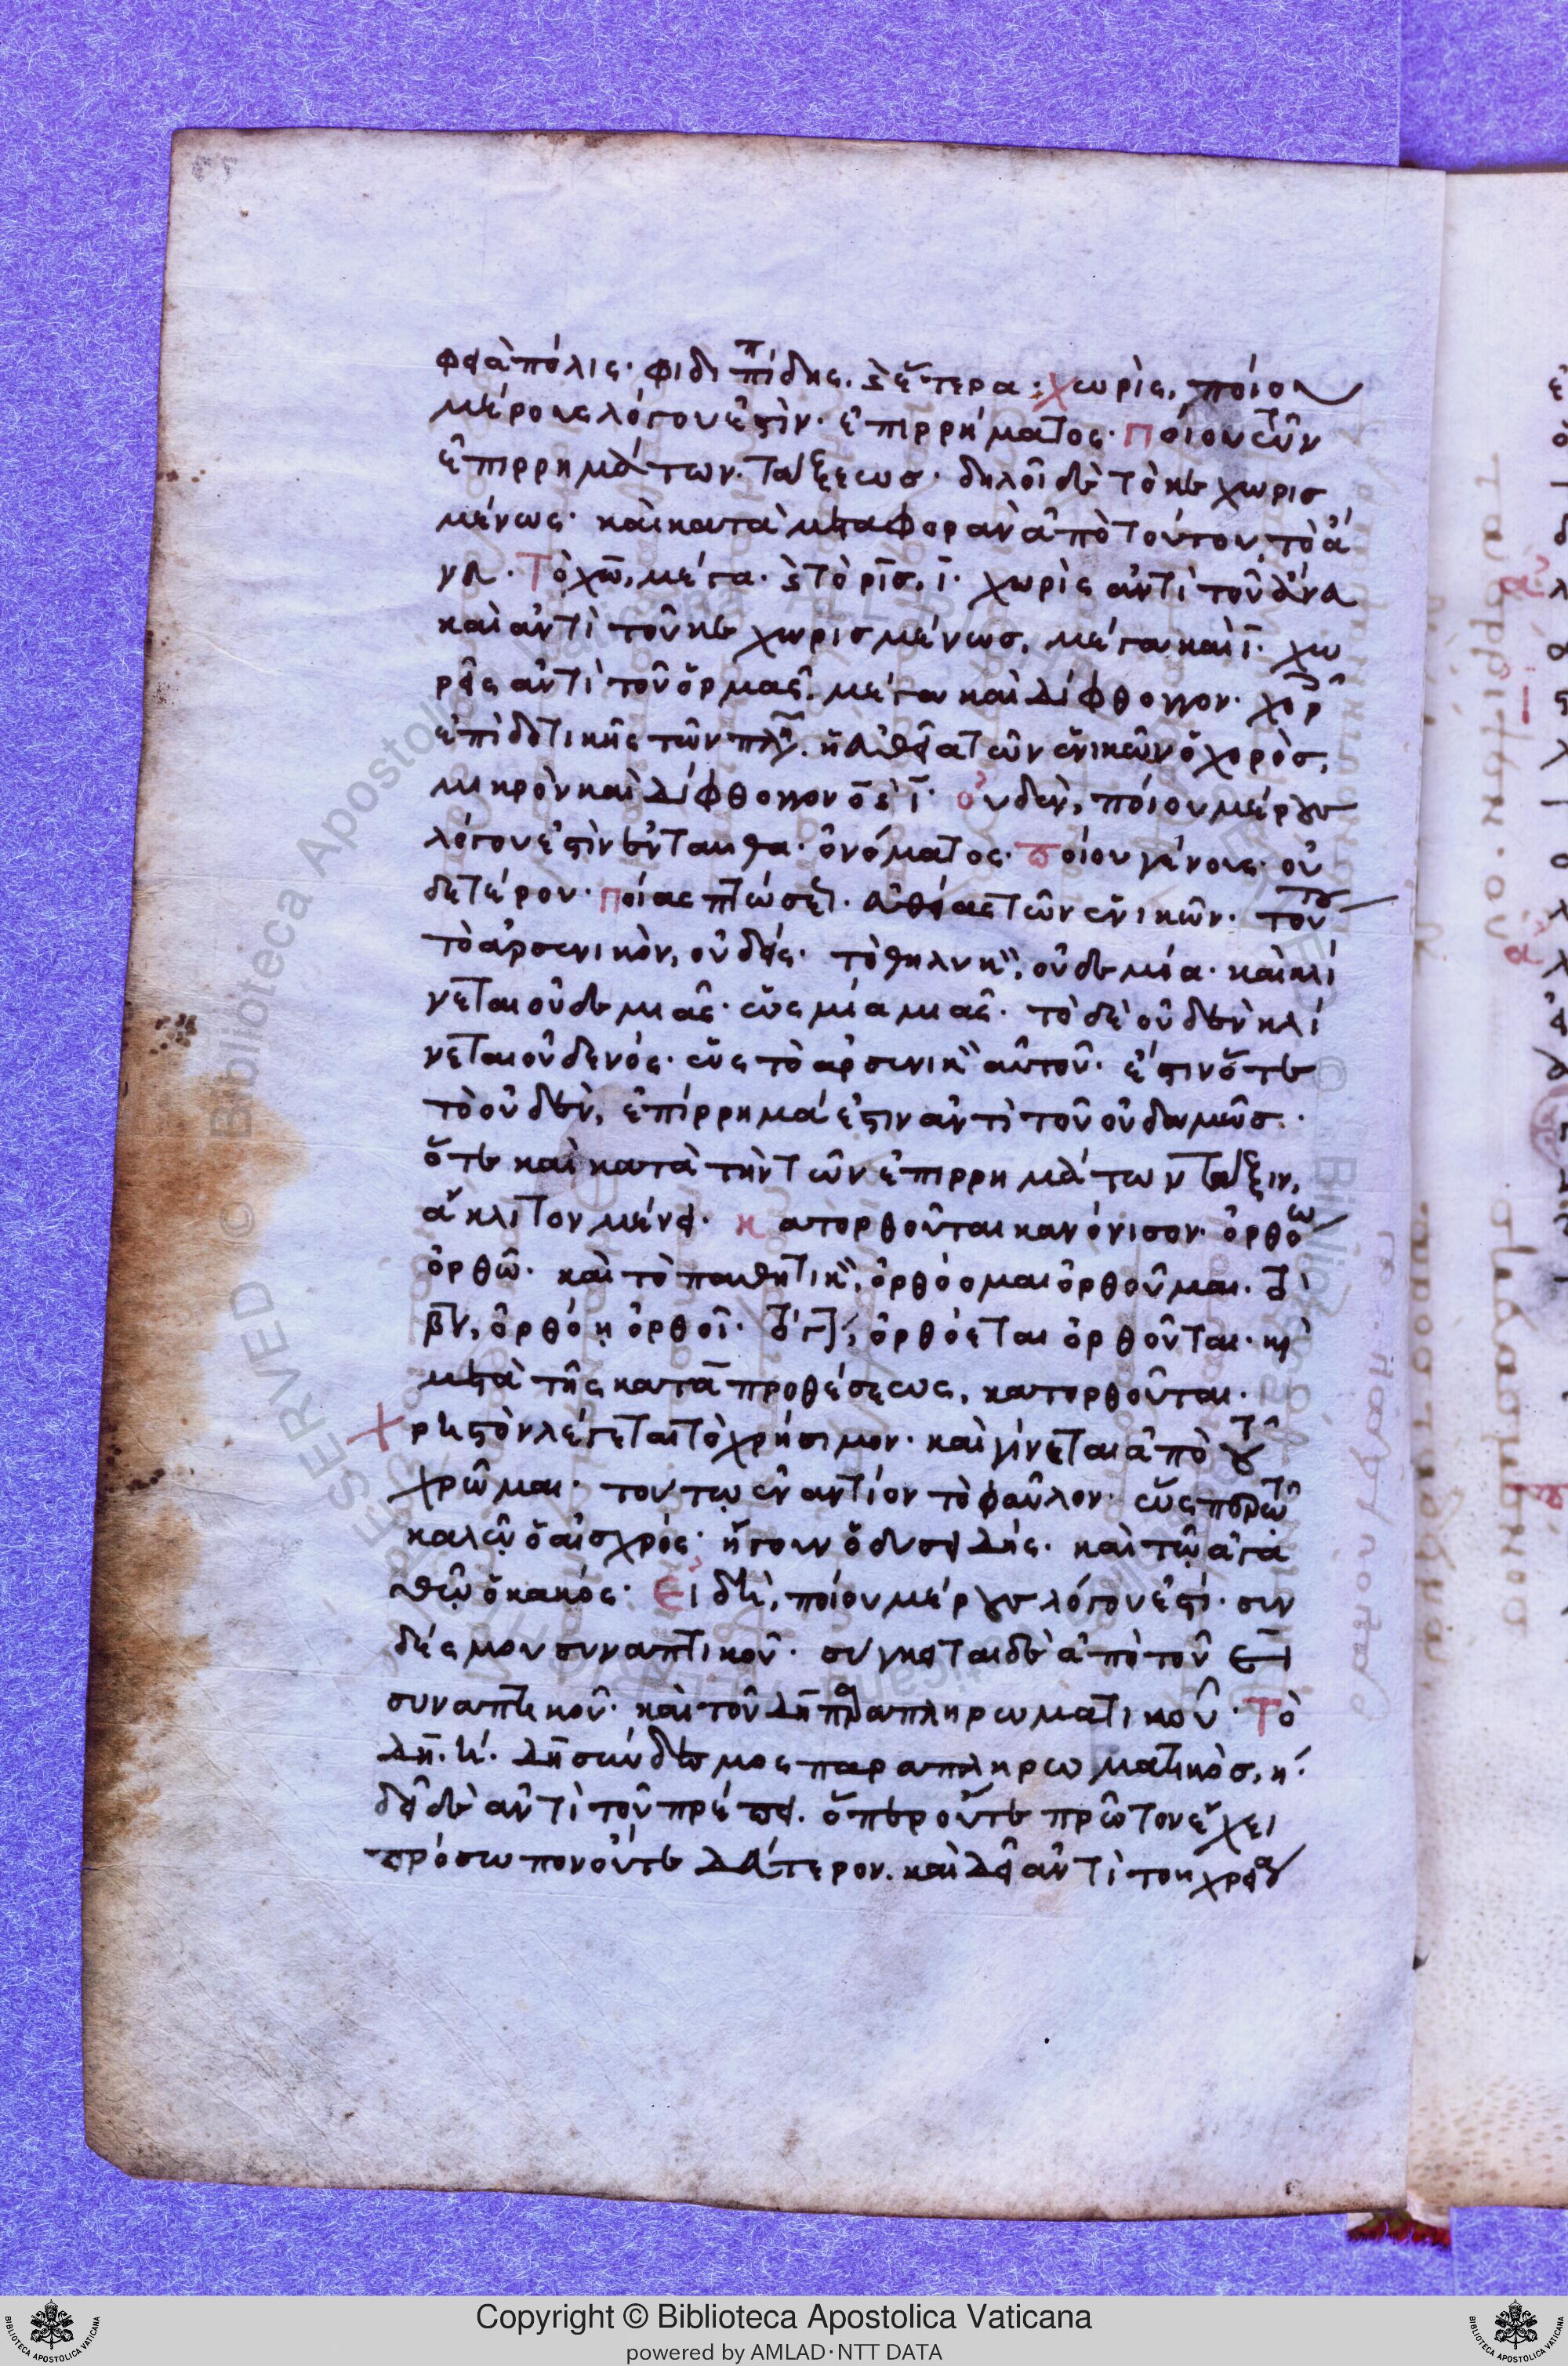 φειὰπόλις· φιδιππίδης. καὶ ἕτερα· χωρὶς, ποίου
μέρους λόγου ἐστὶν· ἐπιρρήματος· ποίου τῶν
ἐπιρρημάτων· τάξεως· δηλοῖ δὲ τὸ κεχωρισ
μένως· καὶ κατὰ μεταφορὰν ἀπὸ τούτου, τὸ ἄ
νευ· Τὸ χω, μέγα· καὶ τὸ ρις, ι· χωρὶς ἀντὶ τοῦ ἄνευ
καὶ ἀντὶ τοῦ κεχωρισμένως, μέγα καὶ ι· χω
ρεῖς ἀντὶ τοῦ ὁρμᾶς, μέγα καὶ δίφθογγον· χοροῖς
ἐπὶ δοτικῆς τῶν πληθυντικῶν. ἡ εὐθεῖα τῶν ἑνικῶν ὁ χορὸς,
μικρὸν καὶ δίφθογγον ο καὶ ι· οὐδὲν, ποίου μέρους
λόγου ἐστὶν ἐνταῦθα· ὀνόματος· ποίου γένους· οὐ
δετέρου· ποίας πτώσεως· εὐθείας τῶν ἑνικῶν· τούτου
τὸ ἀρσενικὸν, οὐδείς· τὸ θηλυκὸν, οὐδεμία· καὶ κλί
νεται οὐδεμιᾶς· ὡς μία μιᾶς· τὸ δὲ οὐδὲν κλί
νεται οὐδενός· ὡς τὸ ἀρσενικὸν αὐτοῦ· ἔστιν ὅτε
τὸ οὐδὲν, ἐπίρρημά ἐστιν ἀντὶ τοῦ οὐδαμῶς·
ὅτε καὶ κατὰ τὴν τῶν ἐπιρρημάτων τάξιν,
ἄκλιτον μένει· κατορθοῦται κανόνισον· ὀρθόω
ὀρθῶ· καὶ τὸ παθητικὸν, ὀρθόομαι ὀρθοῦμαι· τὸ
βον, ὀρθόῃ ὀρθοῖ· τὸ γον, ὀρθόεται ὀρθοῦται· καὶ
μετὰ τῆς κατὰ προθέσεως, κατορθοῦται·
Χρηστὸν λέγεται τὸ χρήσιμον· καὶ γίνεται ἀπὸ τοῦ
χρῶμαι· τούτῳ ἐναντίον τὸ φαῦλον· ὡς περ τῶ
καλῶ ὁ αἰσχρός· ἤγουν ὁ δυσειδής· καὶ τῶ ἀγα
θῶ ὁ κακός· Εἰ δὴ, ποίου μέρους λόγου ἐστί· συν
δέσμου συναπτικοῦ· σύγκειται δὲ ἀπὸ τοῦ ει
συναπτικοῦ· καὶ τοῦ δὴ παραπληρωματικοῦ· Τὸ
δη, η· δὴ σύνδεσμος παραπληρωματικὸς, η·
δεῖ δὲ ἀντὶ τοῦ πρέπει. ὅπερ οὔτε πρῶτον ἔχει
πρόσωπον οὔτε δεύτερον. καὶ δεῖ ἀντὶ τοῦ χρεία